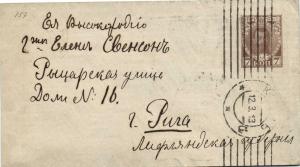 157
Ея Высокородію
Г-жѣ Еленѣ Свенсонъ
Рыцарская улица
Домъ № 16.
г. Рига
Лифляндская губернія
7 КОП 7
12.3.13